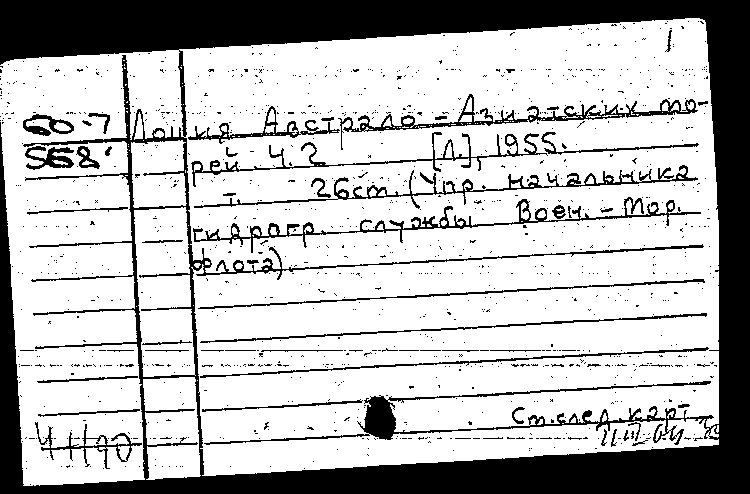 1
60.7 Лоция Австрало-Азиатских мо-
568. рей Ч.2 [Л.], 1955.
т. 26см. (Упр. начальника
гидрогр. службы Воен.-Мор.
флота).
См. след. карт